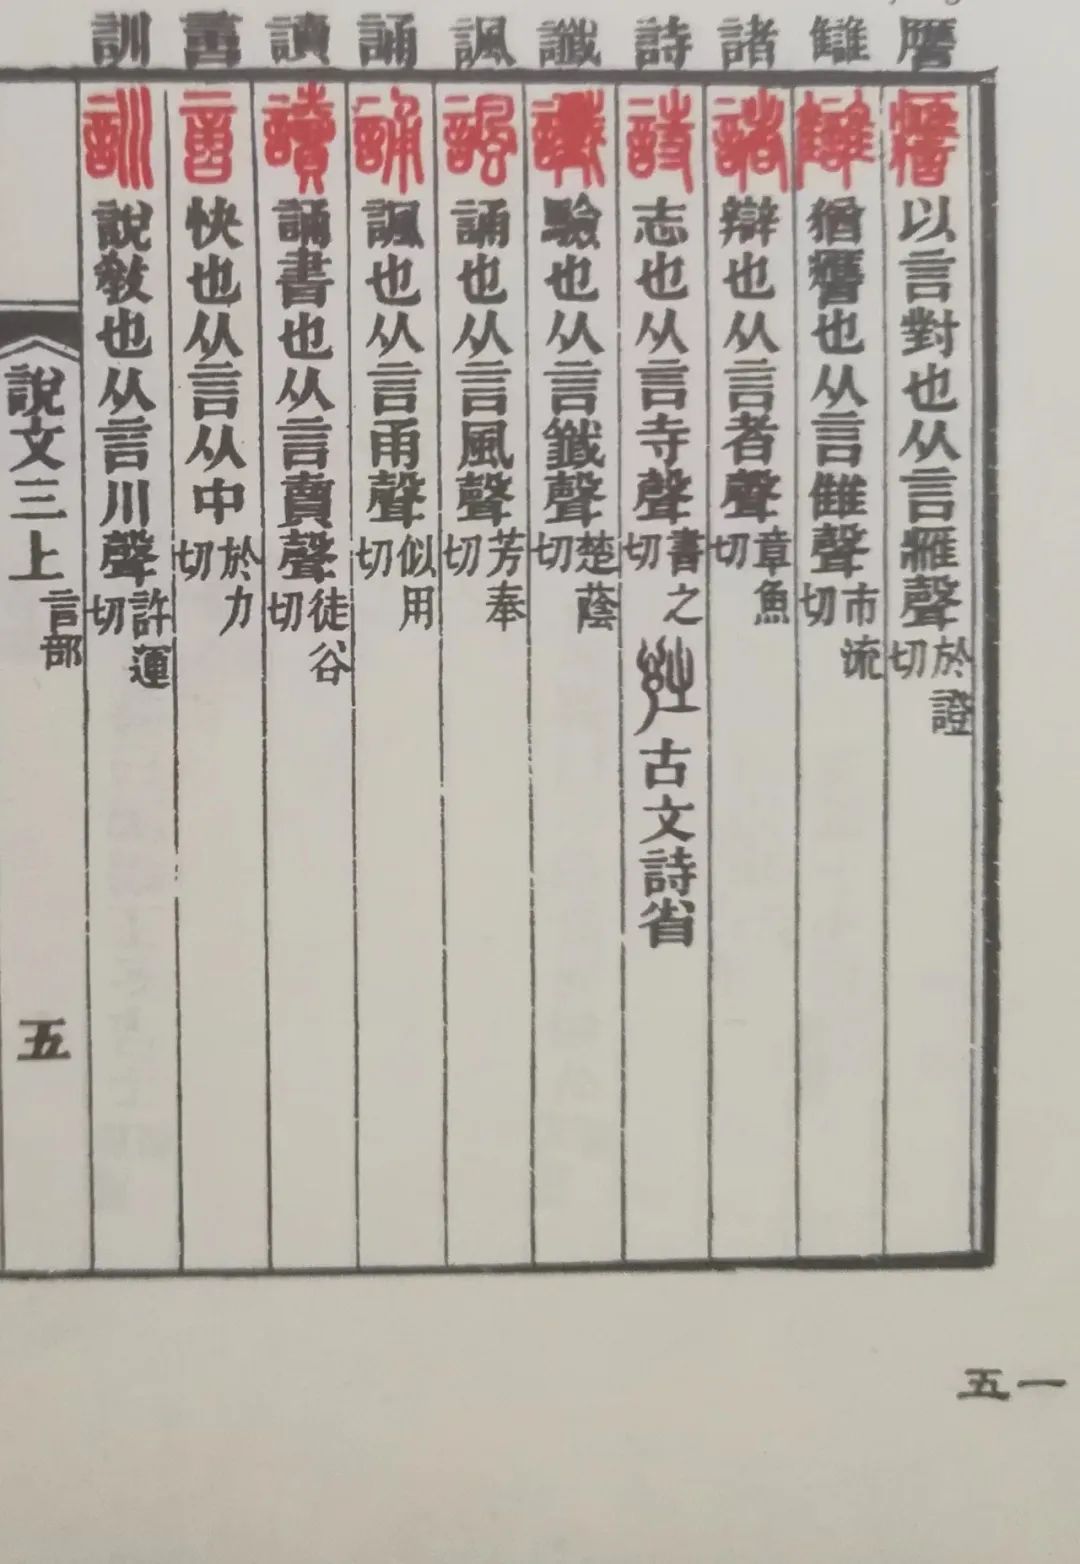 譍 讎 諸 詩 讖 諷 誦 讀 訓
譍 以言對也从言雁聲 於證切
讎 猶譍也从言雔聲 市流切
諸 辯也从言者聲 章魚切
詩 志也从言寺聲 書之切 古文詩省
讖 驗也从言韱聲 楚蔭切
諷 誦也从言風聲 芳奉切
誦 諷也从言甬聲 似用切
讀 誦書也从言賣聲 徒谷切
快也从言从中 於力切
訓 說敎也从言川聲 許運切
說文三上 言部
五
一五